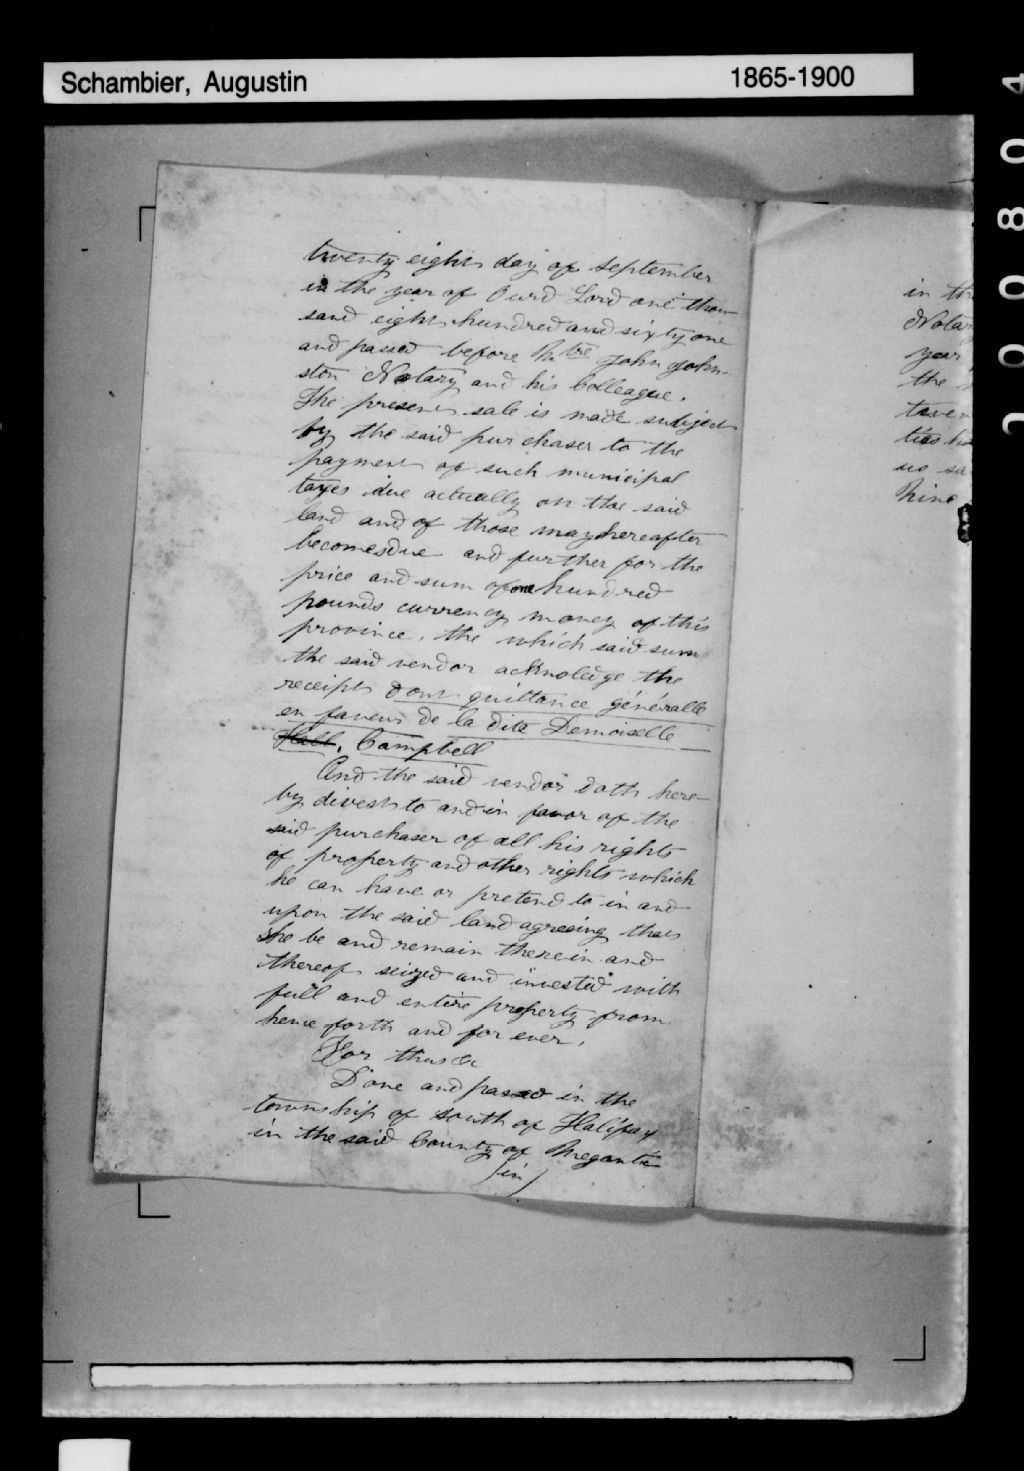 Schambier, Augustin
1865-1900
twenty eight day of September
in the year of Ourd Lord one thou
sand eight hundred and sixty one
and passed before Mtre John John-
ston Notary and his Colleague.
The present sale is made subject
by the said purchaser to the
payment of such municipal
taxes due actually on the said
land and of those may hereafter
becomes due and further for the
price and sum of one hundred
pounds currency money of this
province, the which said sum
the said vendor acknoledge the
receipt dont quittance généralle
en faveur de la dite Demoiselle
Hall, Campbell
And the said vendor doth here
by divest to and in favor of the
said purchaser of all his rights
of property and other rights which
he can have or pretend to in and
upon the said land agreeing that
she be and remain therein and
thereof seized and invested with
full and entire property from
hence forth and for ever.
For thus &c
Done and passed in the
township of south of Halifax
in the said County of Megantic
(in)
in th
Notar
year
the
ties ha
us sa
nine